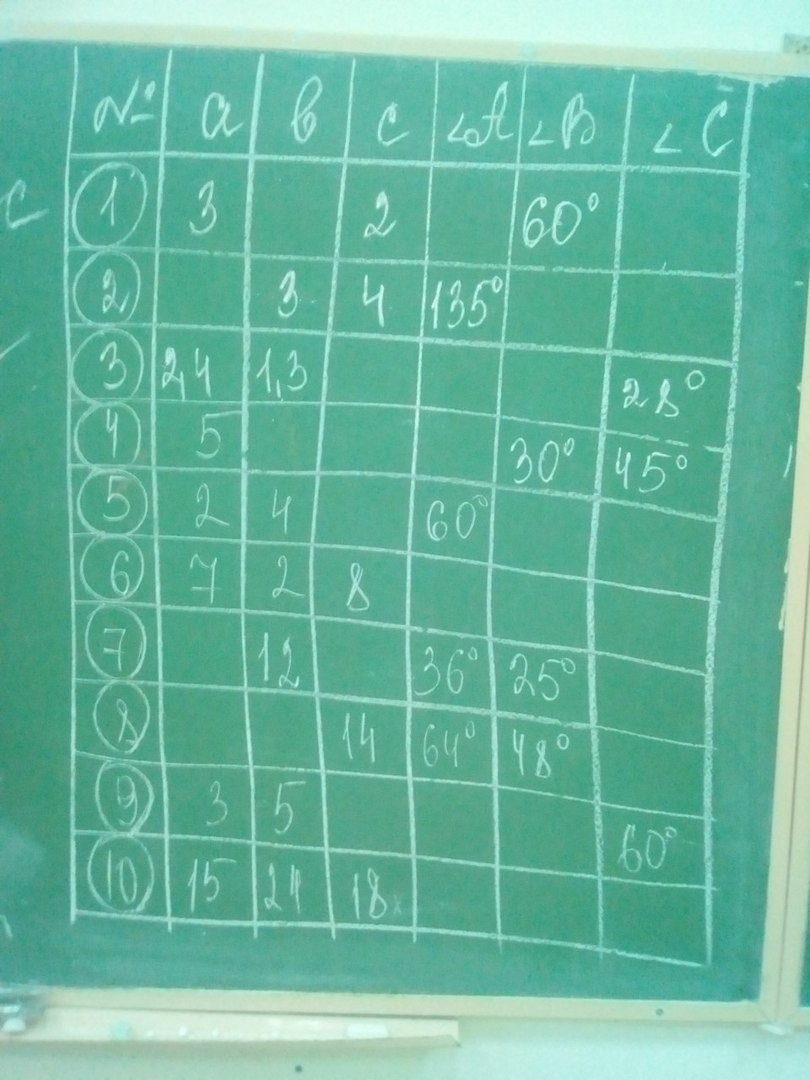 № a b c ∠A ∠B ∠C
1 3 2 60°
2 3 4 135°
3 2,4 1,3 28°
4 5 30° 45°
5 2 4 60°
6 7 2 8
7 12 36° 25°
8 14 64° 48°
9 3 5 60°
10 15 24 18